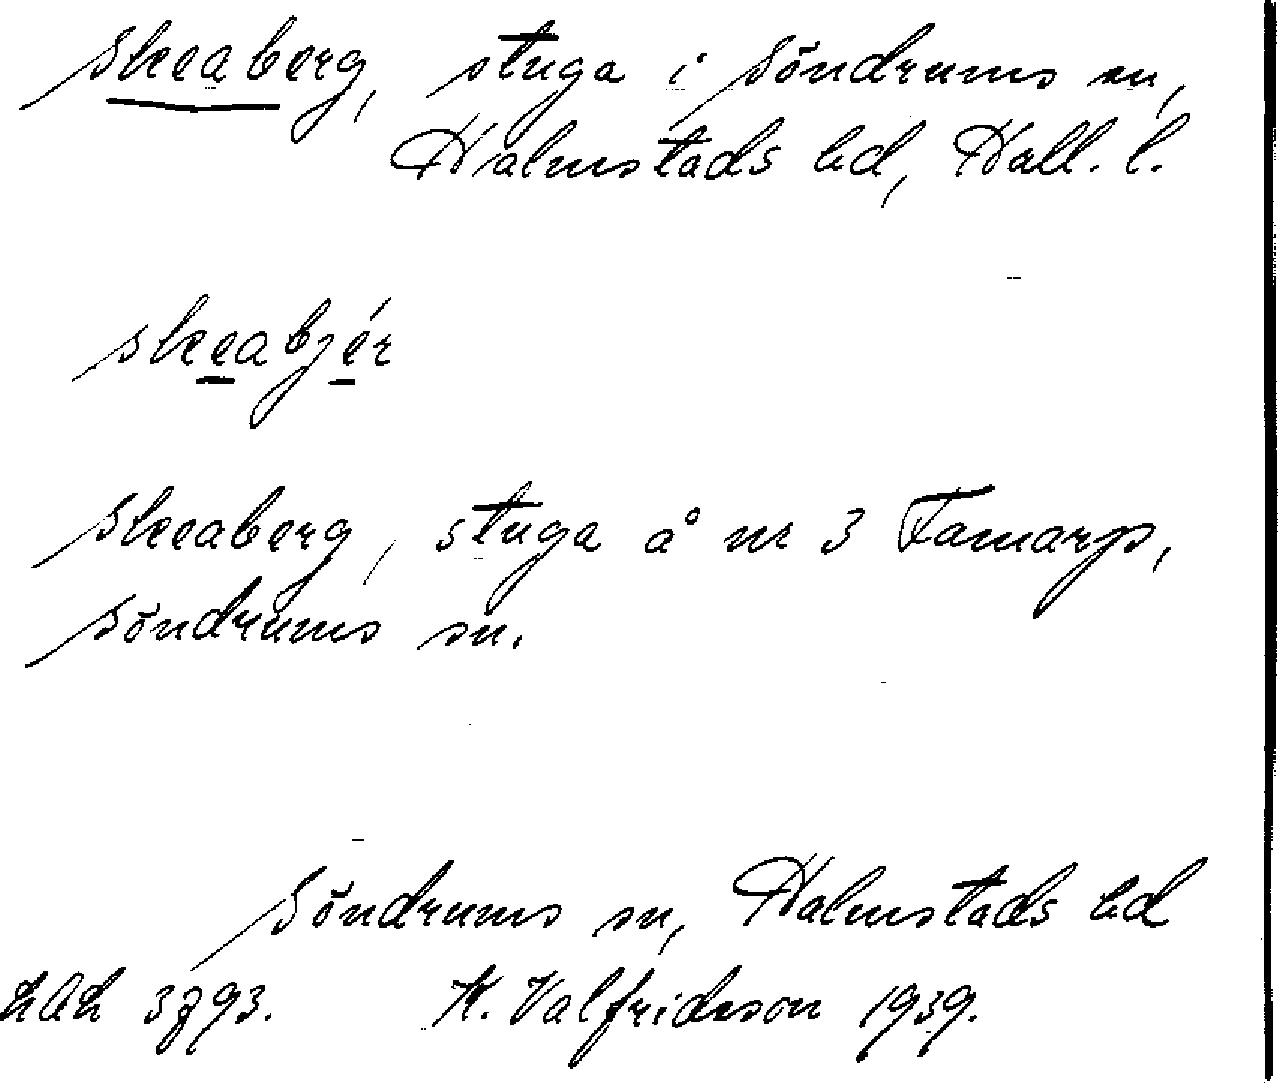 Skeaberg, stuga i Söndrums sn,
Halmstads hd, Hall. l.
skeabjér
Skeaberg, stuga å nr 3 Tamarp,
Söndrums sn.
Söndrums sn, Halmstads hd
H. Valfridsson 1939.